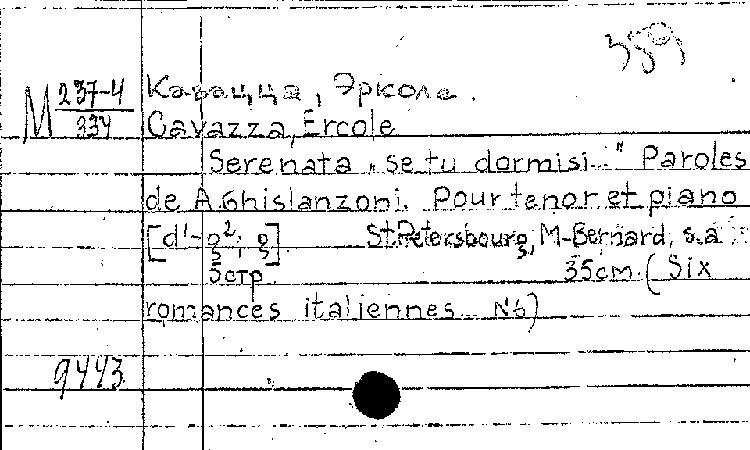 389
М 237-4/334
Кавацца, Эрколе.
Cavazza, Ercole
Serenata „se tu dormisi..." Paroles
de A. Ghislanzoni. Pour tenor et piano
[d'-g²; g] St. Petersbourg, M. Bernard, s.a.
5 стр. 35 cm. (Six
romances italiennes N6)
9443